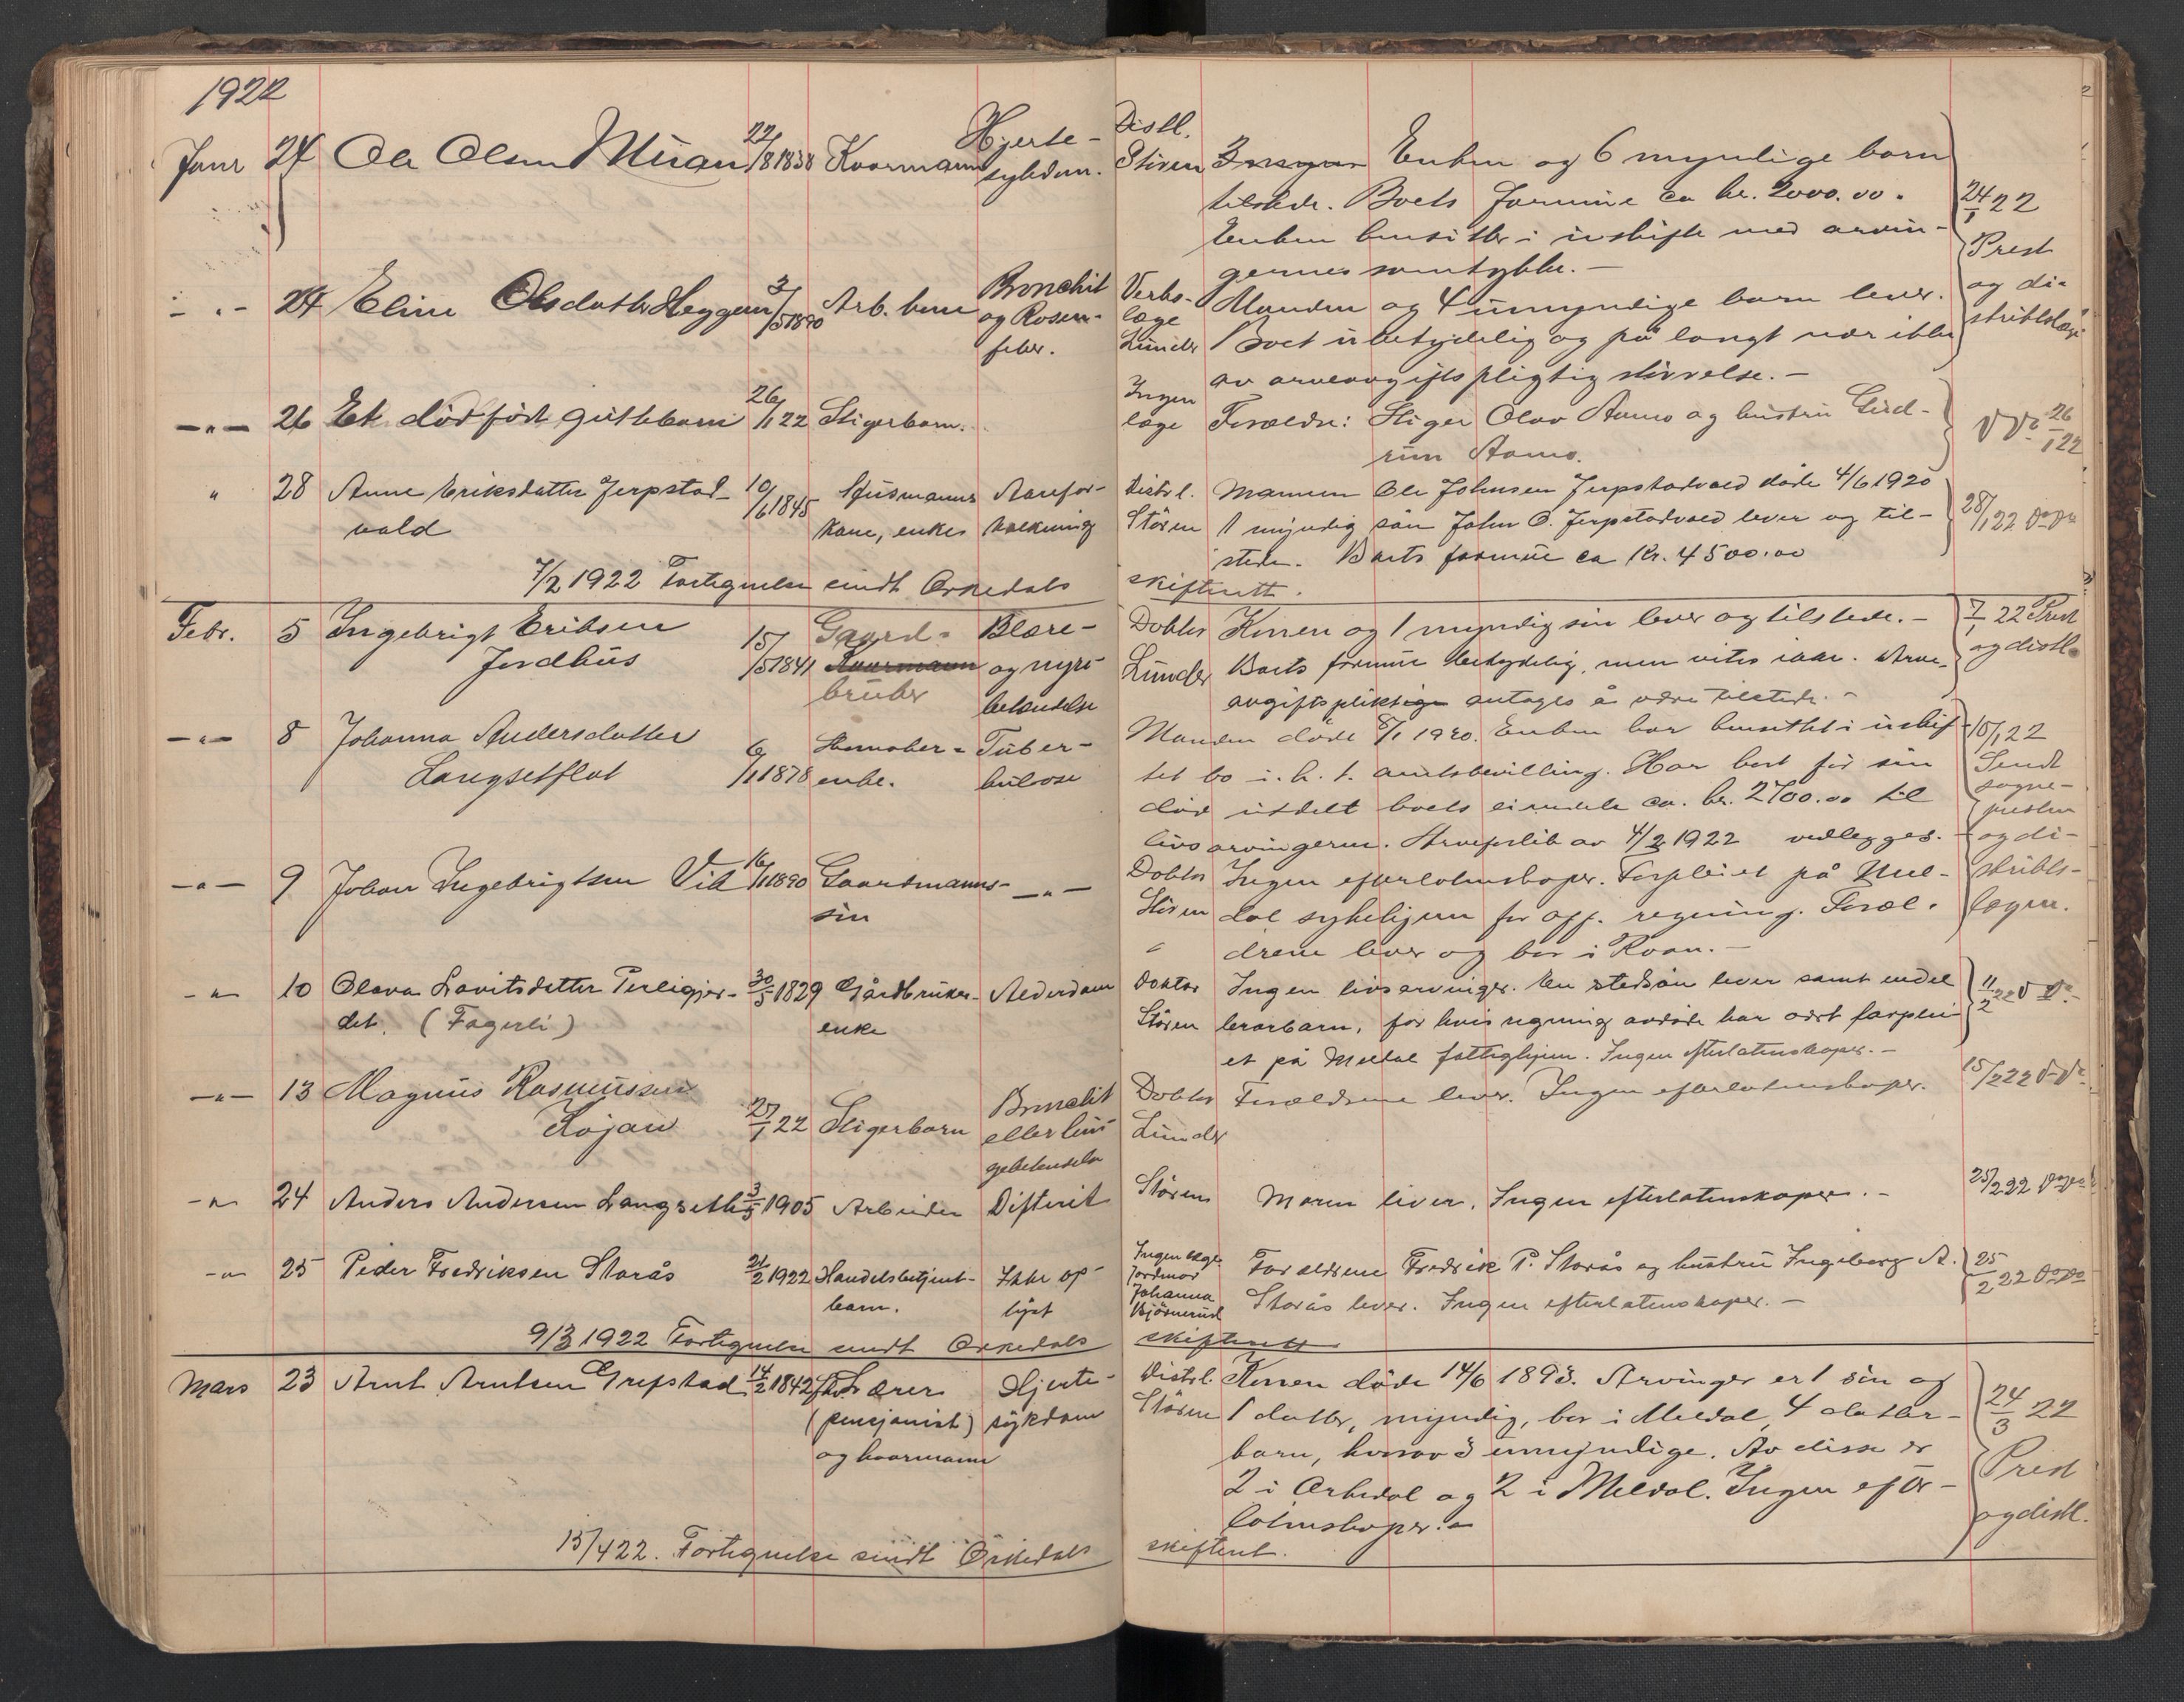 1922
Janr 24 Ole Olsen Muan 22/8 1838 Kaarmann Hjerte-
sykdom. Distl.
Støren Enken og 6 myndige barn
tilstede. Boets formue ca kr. 2000.00.
Enken hensitter i uskifte med arvin-
gernes samtykke.—
24/1 22
Prest
og di-
striktslæge
— " — 24 Eline Olsdatter Heggem 3/5 1890 Arb. kone Bronchit
og Rosen-
feber. Verks-
læge
Lunder Manden og 4 umyndige barn lever.
Boet ubetydelig og på langt nær ikke
av arveavgiftspligtig størrelse.—
— " — 26 Et dødfødt guttebarn 26/1 22 Stigerbarn. Ingen
læge Forældre: Stiger Olav Aamo og hustru Gud-
run Aamo.
Do Do 26/1 22
" 28 Anne Eriksdatter Jerpstad-
vald 10/6 1845 Husmanns
kone, enke Aarefor-
kalkning Distr l.
Støren Mannen Ole Johnsen Jerpstadvald døde 4/6 1920
1 myndig søn John O. Jerpstadvald lever og til-
stede. Boets formue ca Kr. 4500.00
28/1 22 Do Do
7/2 1922 Fortegnelse sendt Orkedals skifterett.
Febr. 5 Ingebrigt Eriksen
Jordhus 15/5 1841 Gaard-
Kaarmann
bruker Blære-
og nyre-
betændelse Doktor
Lunder Konen og 1 myndig søn lever og tilstede.—
Boets formue betydelig, men vites ikke. Arve-
avgiftspliktig antages å være tilstede.—
7/1 22 Prest
og distl.
— " — 8 Johanna Andersdatter
Langsetflat 6/11 1878
enke. Tuber-
kulose Manden døde 8/1 1920. Enken har hensittet i uskif-
tet bo i. h. t. amtsbevilling. Har kort før sin
død utdelt boets eiendele ca. kr. 2700.00 til
livsarvingerne. Arveskifte av 4/2 1922 vedlegges.
10/1 22
Sendt
sogne-
presten
og di-
strikts-
lægen.
— " — 9 Johan Ingebrigtsen Vik 16/11 1890 Gaardmanns-
søn — " — Doktor
Støren Ingen efterlatenskaper. Forpleiet på Mel-
dal sykehjem for off. regning. Foræl-
drene lever og bor i Roan.—
— " — 10 Olava Lavitsdatter Perligjer-
det. (Fagerli) 30/5 1829 Gårdbruker-
enke Alderdom Doktor
Støren Ingen livsarvinger. En stedsøn lever samt endel
brorbarn, for hvis regning avdøde har vært forplei-
et på Meldal fattighjem. Ingen efterlatenskaper.—
11/2 22 Do Do
— " — 13 Magnus Rasmussen
Kojan 27/1 22 Stigerbarn Bronchit
eller lun-
gebetendelse Doktor
Lunder Forældrene lever. Ingen efterlatenskaper.
15/2 22 Do Do
— " — 24 Anders Andersen Langseth 3/5 1905 Arbeider Difterit Støren Moren lever. Ingen efterlatenskaper.—
25/2 22 Do Do
— " — 25 Peder Fredriksen Storås 21/2 1922 Handelsbetjent-
barn. Ikke op-
lyst Ingen læge
Jordmor
Johanna
Bjørnerud Foreldrene Fredrik P. Storås og hustru Ingeborg A.
Storås lever. Ingen efterlatenskaper.—
25/2 22 Do Do
9/3 1922 Fortegnelse sendt Orkedals skifterett
Mars 23 Arnt Arntsen Grefstad 14/2 1842 Lærer
(pensjonist)
og kaarmann Hjerte-
sykdom Distr l.
Støren Konen døde 14/6 1893. Arvinger er 1 søn og
1 datter, myndig, bor i Meldal, 4 datter-
barn, hvorav 3 umyndige. Av disse er
2 i Orkedal og 2 i Meldal. Ingen efter-
latenskaper.—
24/3 22
Prest
og distl.
15/4 22. Fortegnelse sendt Orkedals skifterett.